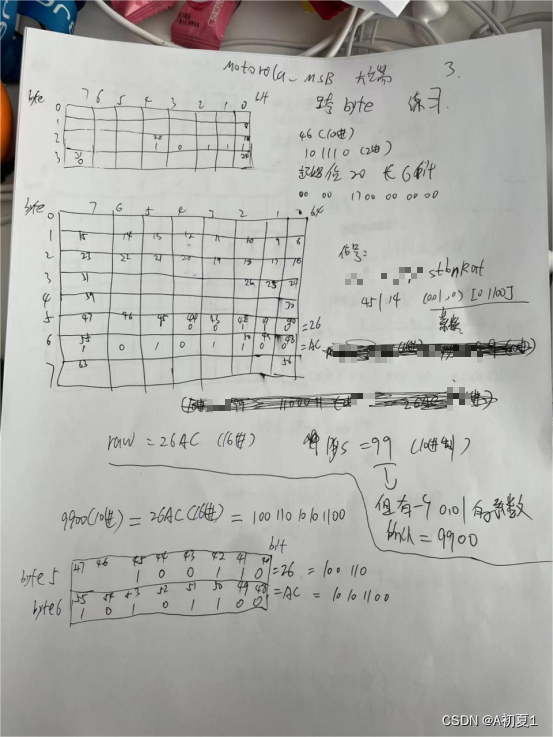 Motorola_MSB 大端 3.
跨byte 练习.
byte 7 6 5 4 3 2 1 0 bit
0
1 8
2 20 16
3 31 1 0 1 1 1 24
0
46 (10进)
10 1110 (2进)
起始位 20 长 6 bit
00 00 17 00 00 00 00
byte 7 6 5 4 3 2 1 bit
0
1 15 14 13 12 11 10 9 8
2 23 22 21 20 19 18 17 16
3 31 26 25 24
4 39 32
5 47 46 45 44 43 42 41 40 =26
6 55 50 49 48 =AC
1 0 1 0 1 1 0 0
7 63 56
信号:
45|14 (0.01,0) [0|100]
系数
raw = 26AC (16进) phys = 99 (10进制)
但有一个 0.01 的系数
phch = 9900
9900(10进) = 26AC(16进) = 100 110 1010 1100
bit
byte5 47 46 45 44 43 42 41 40 =26 = 100 110
1 0 0 1 1 0
byte6 55 54 53 52 51 50 49 48 =AC = 1010 1100
1 0 1 0 1 1 0 0
CSDN @A初夏1